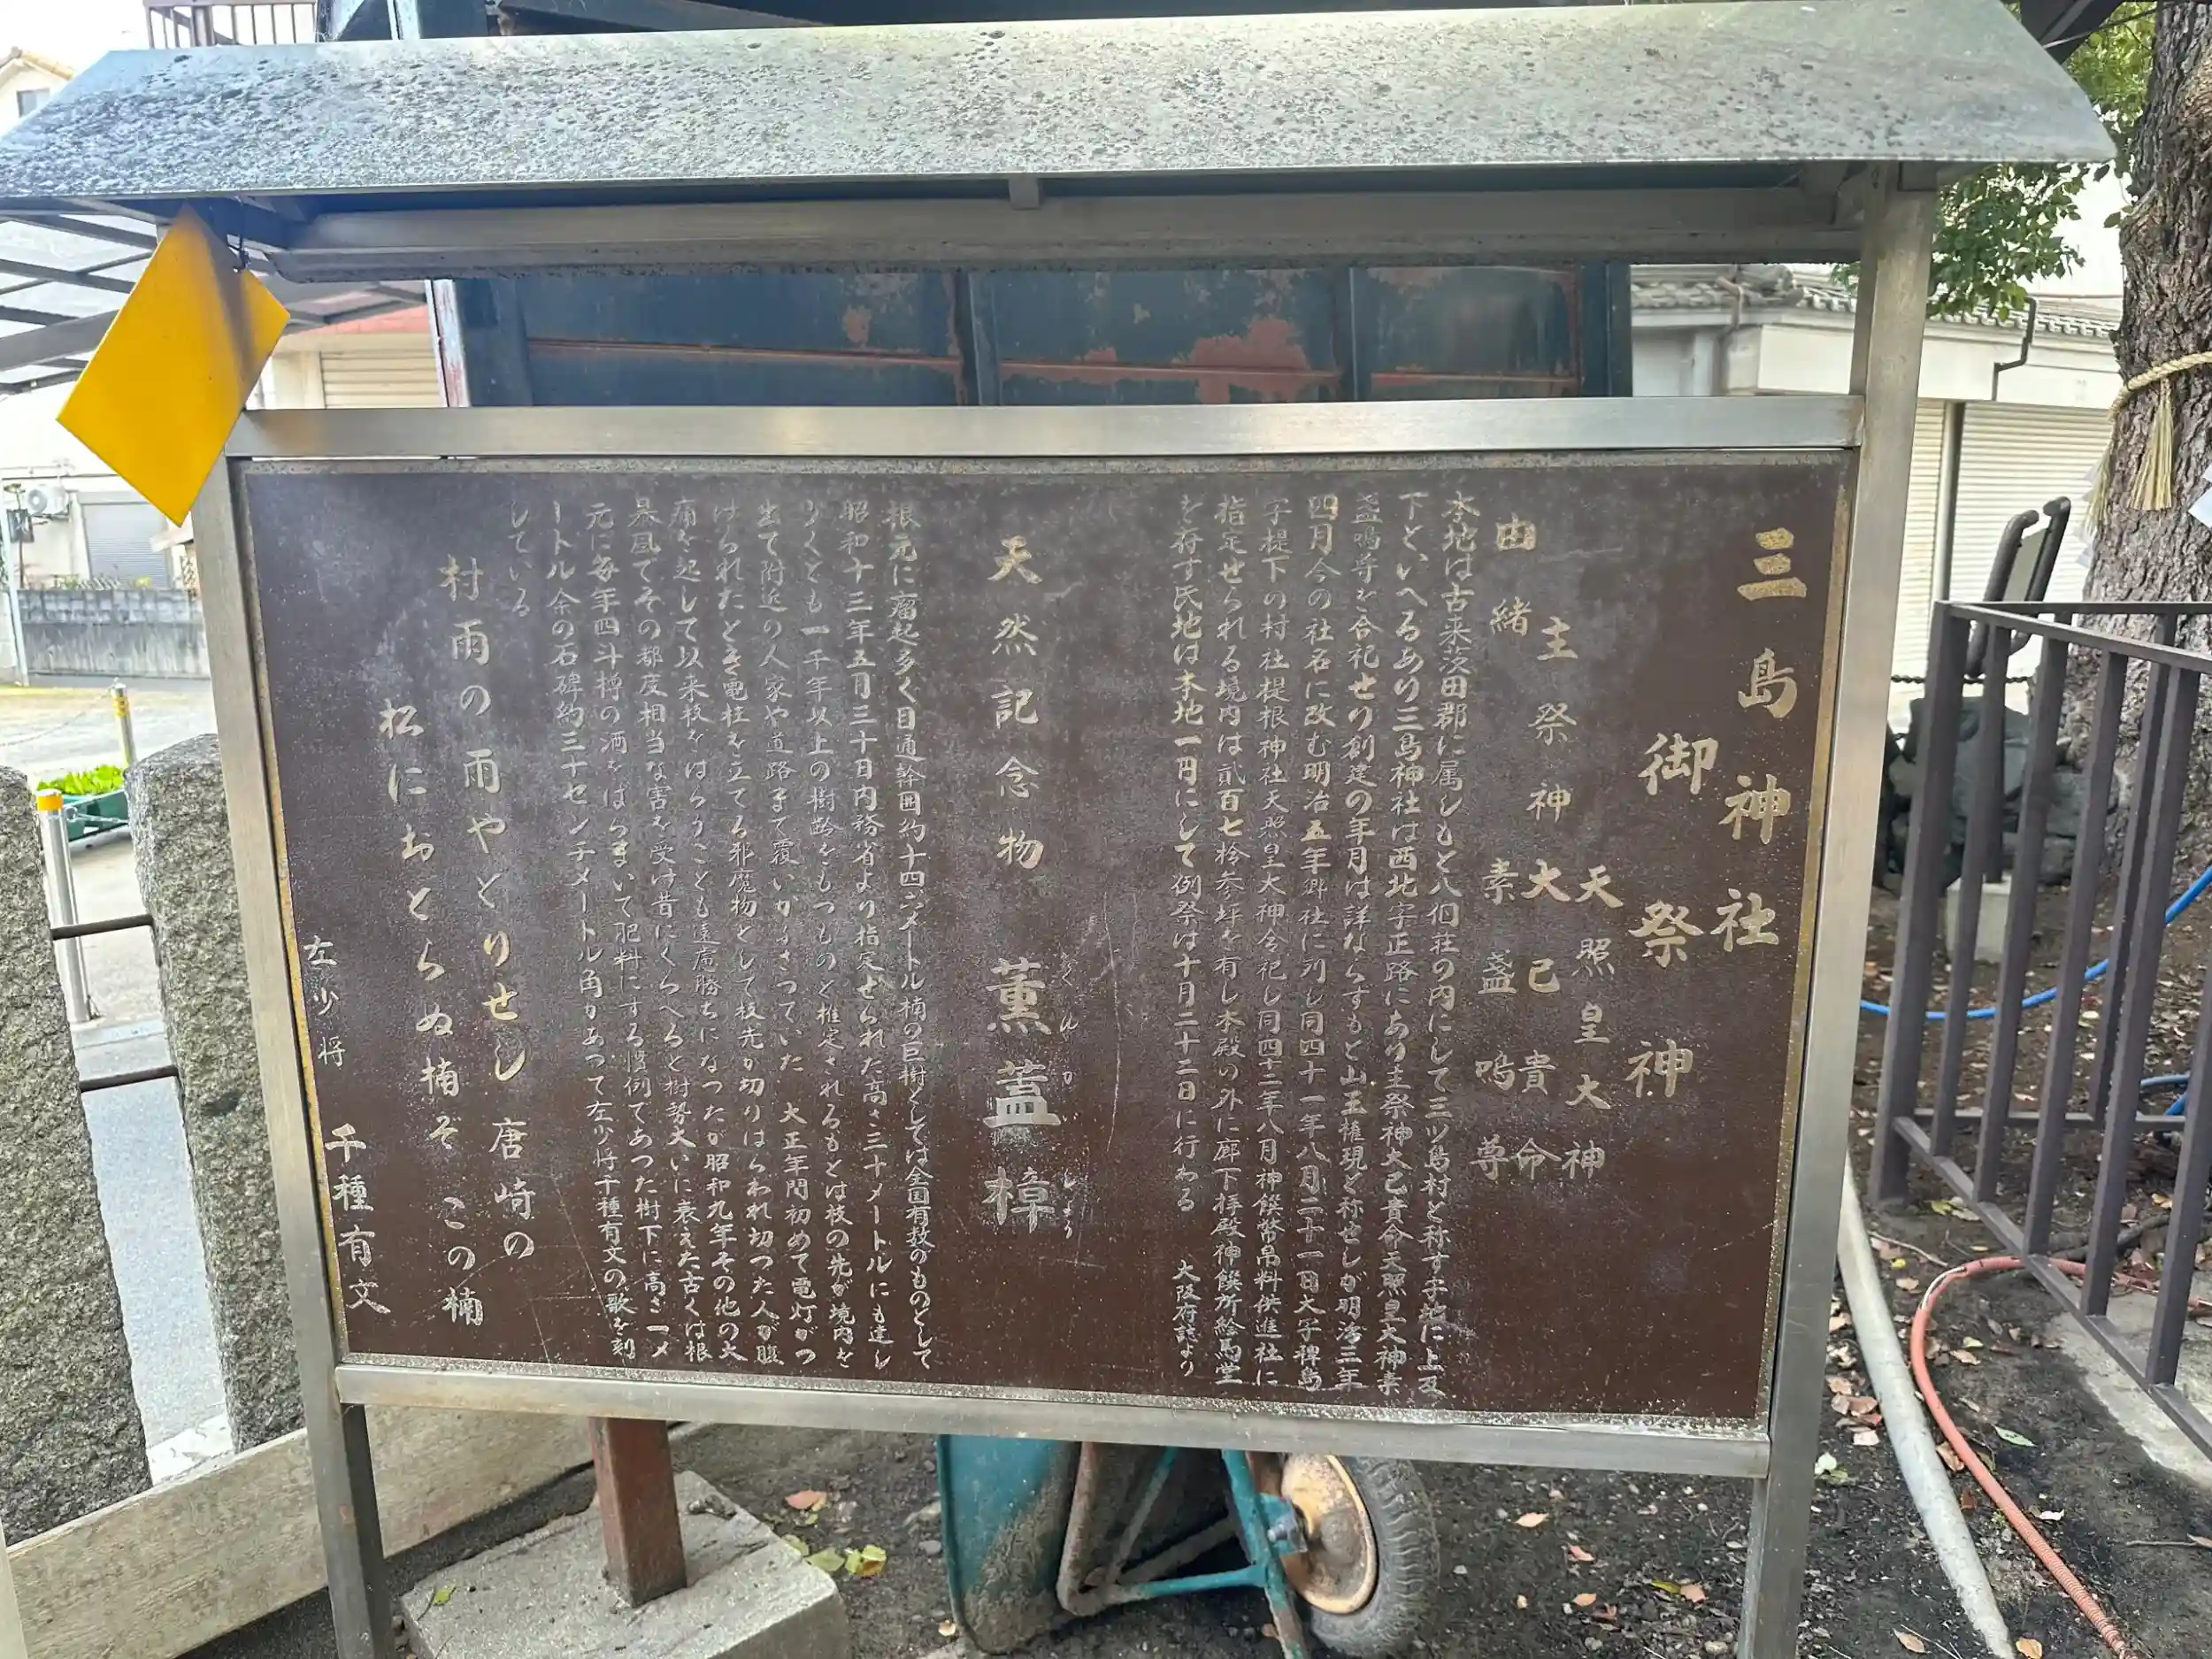 三島神社
御祭神
天照皇大神
主祭神 大己貴命
素盞嗚尊
由緒
本地は古来茨田郡に属しもと八個荘の内にして三ツ島村と称す字地に上又
下といへるあり三島神社は西北字正路にあり主祭神大己貴命天照皇大神素
盞嗚尊を合祀せり創建の年月は詳ならすもと山王権現と称せしが明治三年
四月今の社名に改む明治五年郷社に列し同四十一年八月二十一日大字稗島
字堤下の村社堤根神社天照皇大神合祀し同四十二年八月神饌幣帛料供進社に
指定せられる境内は貳百七拾参坪を有し本殿の外に廊下拝殿神饌所絵馬堂
を存す氏地は本地一円にして例祭は十月二十二日に行わる 大阪府誌より
天然記念物 薫蓋樟
くんがいしょう
根元に瘤起多く目通幹囲約十四㍍メートル楠の巨樹としては全国有数のものとして
昭和十三年五月三十日内務省より指定せられた高さ三十メートルにも達し
少くとも一千年以上の樹齢をもつものと推定されるもとは枝の先が境内を
出て附近の人家や道路まで覆いかぶさつていた 大正年間初めて電灯がつ
けられたとき電柱を立てる邪魔物として枝先が切りはらわれ切つた人が腹
痛を起して以来枝をはらうことも遠慮勝ちになつたが昭和九年その他の大
暴風でその都度相当な害を受け昔にくらべると樹勢大いに衰えた古くは根
元に毎年四斗樽の酒をばらまいて肥料にする慣例であつた樹下に高さ一メ
ートル余の石碑約三十センチメートル角があつて左少将千種有文の歌を刻
している
村雨の雨やどりせし 唐崎の
松におとらぬ楠ぞ この楠
左少将 千種有文